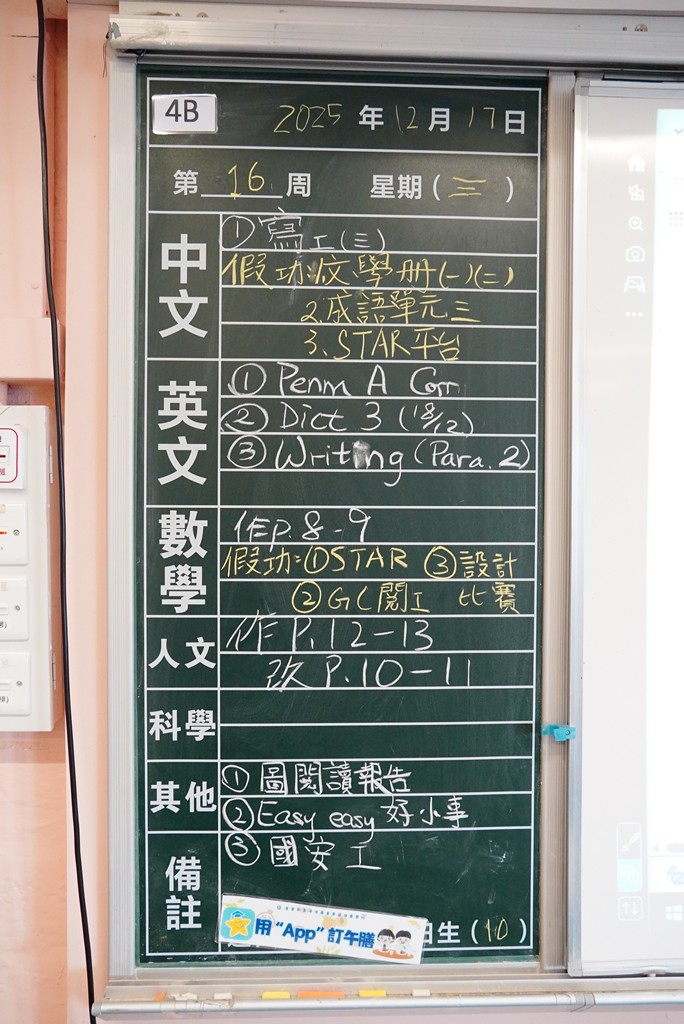 4B 2025 年 12 月 17 日
第 16 周 星期 ( 三 )
中文
① 寫工(三)
假功:1.文學册(一)(二)
2.成語單元三
3.STAR平台
英文
① Penm A Corr
② Dict 3 (18/12)
③ Writing (Para. 2)
數學
作p.8-9
假功:①STAR ③設計
②GC閱工 比賽
人文
作 P.12-13
改 P.10-11
科學
其他
① 圖閱讀報告
② Easy easy 好小事
③ 國安工
備註
用 “App” 訂午膳
日生 ( 10 )